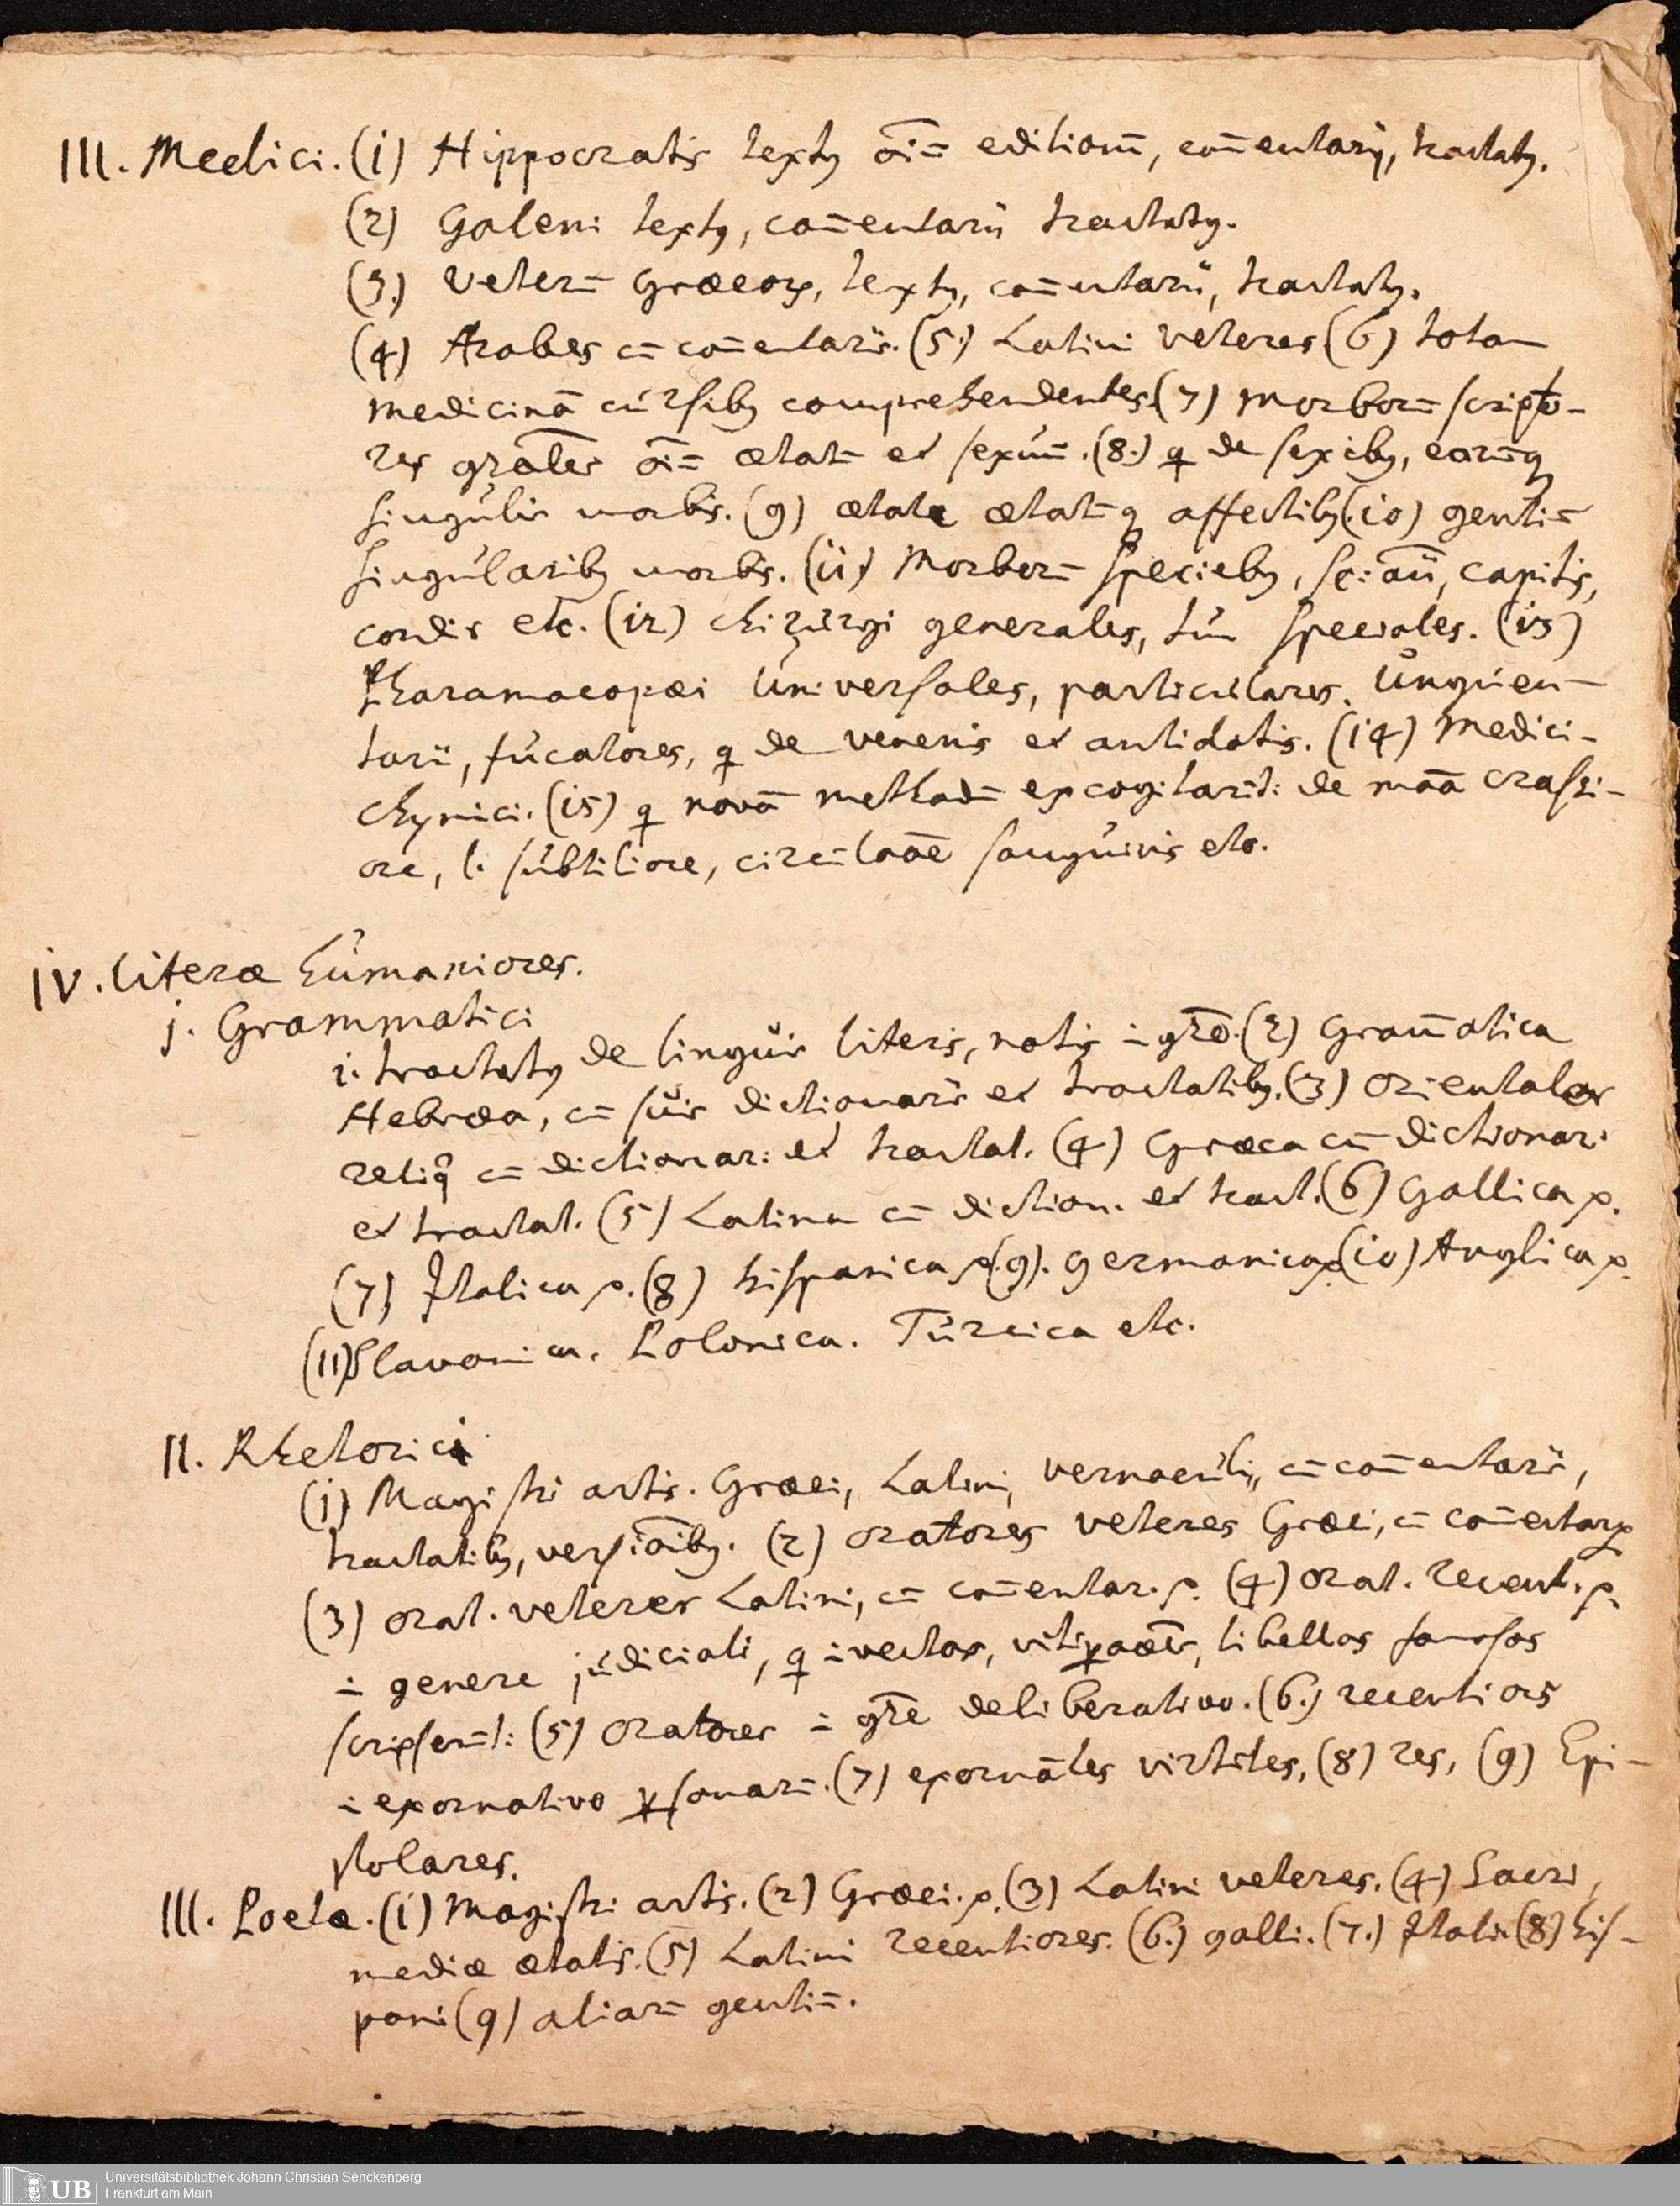 III. Medici. (i) Hippocratis textꝯ oi͞= editionū, com̄entarij, tractatꝯ.
(2) Galeni textꝯ, com̄entarii tractatꝯ.
(3) veter= Græcoꝝ, textꝯ, com̄entarii, tractatꝯ.
(4) Arabes c= com̄entariis. (5.) Latini veteres (6) totam
medicinā cursibꝯ comprehendentes. (7) Morbor= scripto-
res gr̄ales oi͞= ætat= et sexuū. (8.) q de sexibꝯ, ear=q
singulis morbis. (9) ætate ætat=q affectibꝯ. (io) genti=
singularibꝯ morbis. (ii) Morbor= speciebꝯ, sc: ani͞, capitis,
cordis etc. (i2) chirurgi generales, tum speciales. (i3)
Pharamacopæi universales, particulares. Unguen-
tarii, fucatores, q de venenis et antidotis. (i4) Medici-
chymici. (i5) q novā method= excogitar=t: de mā̄a crassi-
ore, l. subtiliore, circ=lāo͞e sanguinis etc.
IV. Literæ humaniores.
j. Grammatici
i. tractatꝯ de linguis literis, notis =i gr̄e. (2) Gram̄atica
Hebræa, c= suis dictionariis et tractatibꝯ. (3) Orientales
reliq̄ c= dictionar: et tractat. (4) Græca c= dictionar:
et tractat. (5) Latina c= diction. et tract. (6) Gallica p.
(7) Italica p. (8) hispanica p. (9). germanica p. (io) Anglica p.
(11) Slavonica. Polonica. Turcica etc.
II. Rhetorici
(i) Magistri artis. Græci, Latini, vernaculi, c= com̄entariis,
tractatibꝯ, versioībꝯ. (2) Oratores veteres Græci, c= com̄entar p
(3) orat. veteres Latini, c= com̄entar. p. (4) orat. recent. p.
=i genere judiciali, q =ivectas, vitiꝑao͞es, libellos famosos
scripser=t: (5) Oratores =i gr̄e deliberativo. (6.) recentiors
=i exornativo ꝑsonar=. (7) exornātes virtutes, (8) res, (9) Epi-
stolares.
III. Poetæ. (i) Magistri artis. (2) Græci. p. (3) Latini veteres. (4) Sacri,
mediæ ætatis. (5) Latini recentiores. (6.) galli. (7.) Itali. (8) his-
pani (9) aliar= genti=.
UB Universitätsbibliothek Johann Christian Senckenberg
Frankfurt am Main